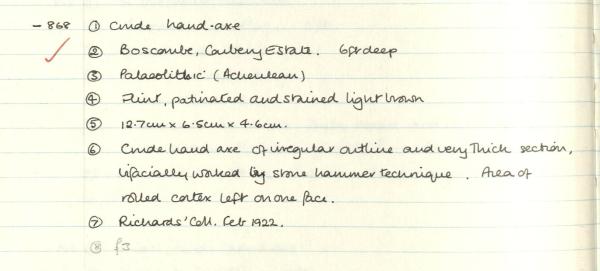 - 868 ① Crude hand-axe
② Boscombe, Carbery Estate. 6ft deep
③ Palaeolithic (Acheulean)
④ Flint, patinated and stained light brown
⑤ 12.7cm x 6.5cm x 4.6cm.
⑥ Crude hand axe of irregular outline and very thick section,
bifacially worked by stone hammer technique. Area of
rolled cortex left on one face.
⑦ Richards' Coll. Feb 1922.
⑧ f3